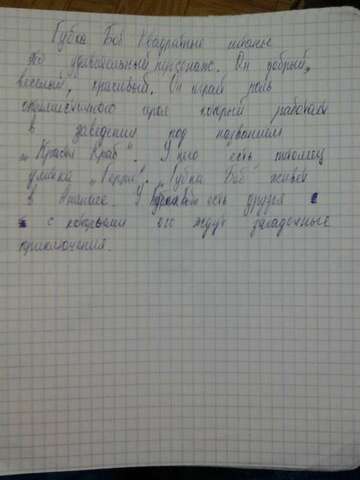 Губка Боб Квадратные штаны
это удивительный персонаж. Он добрый,
веселый, красивый. Он играет роль
оптимистичного героя который работает
в заведении под названием
„Красти Краб". У него есть питомец
улитка „Герри". Губка Боб живёт
в Ананасе. У Губки Боб есть друзья
с которыми его ждут загадочные
приключения.